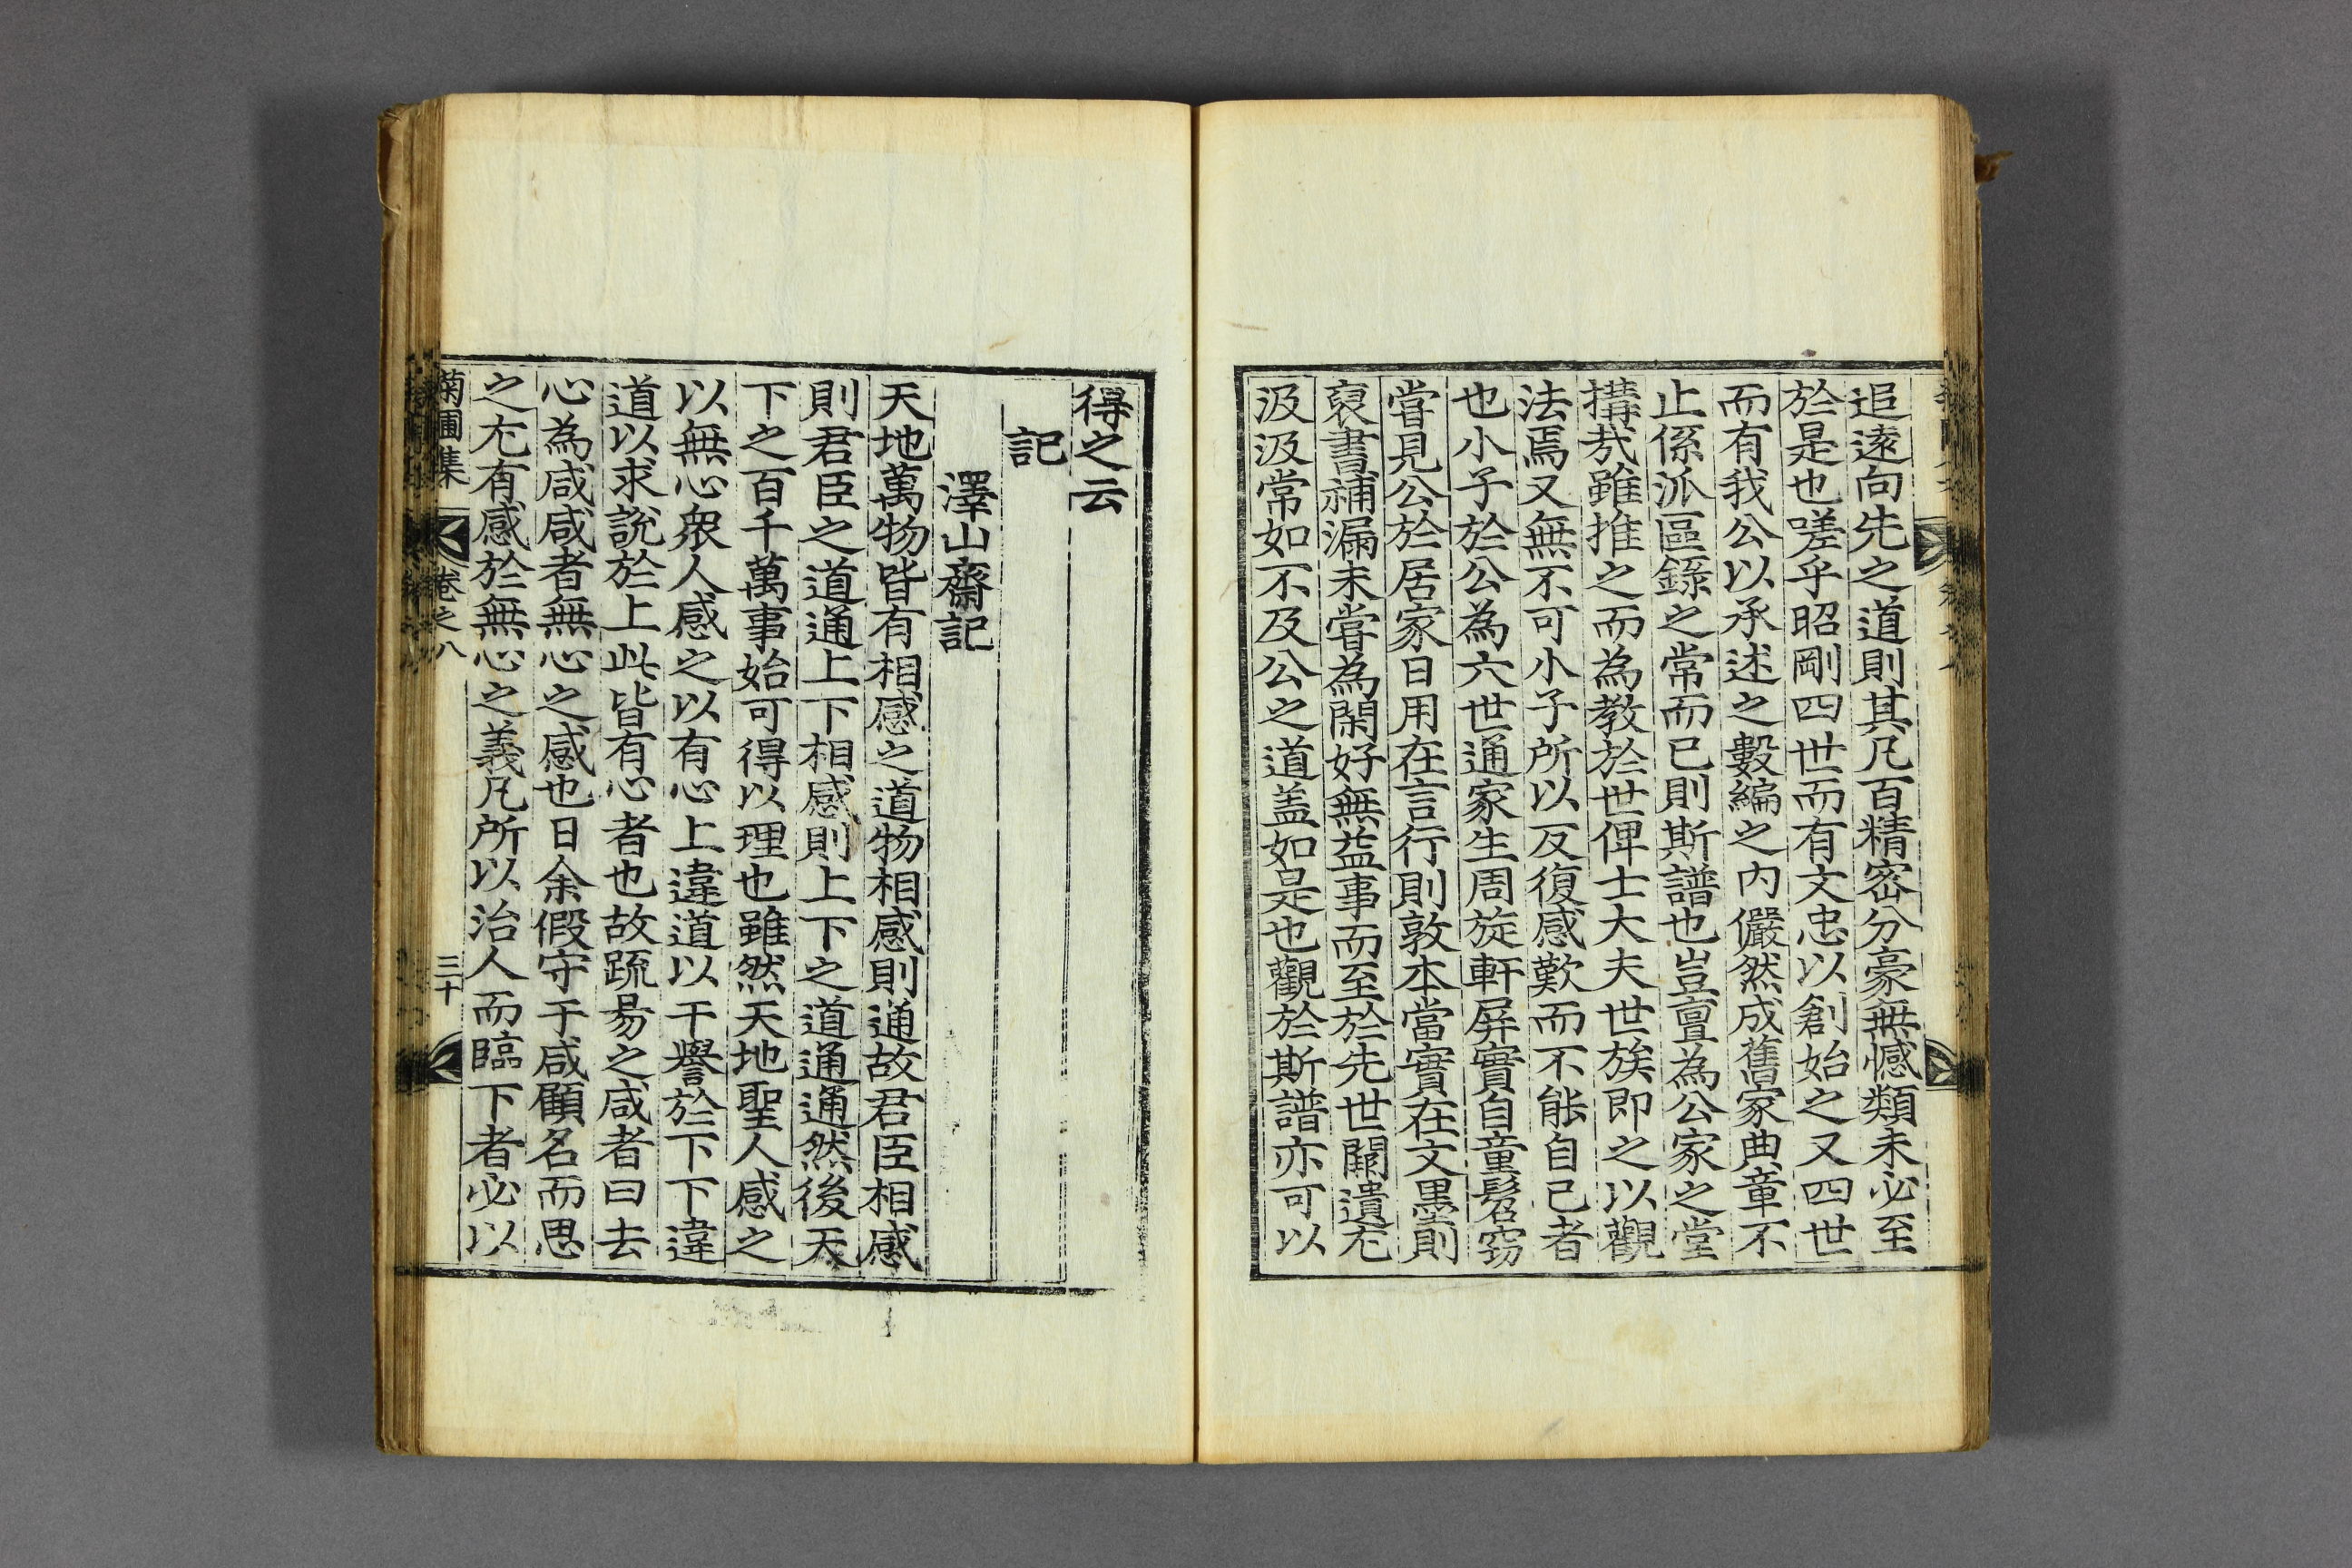 追遠向先之道則其凡百精密分豪無憾類未必至
於是也嗟乎昭剛四世而有文忠以創始之又四世
而有我公以承述之數編之內儼然成舊家典章不
止係派區錄之常而已則斯譜也豈亶為公家之堂
搆㢤雖推之而為教於世俾士大夫世族即之以觀
法焉又無不可小子所以反復感歎而不能自已者
也小子於公為六世通家生周旋軒屏實自童髫窃
嘗見公於居家日用在言行則敦本當實在文墨則
裒書補漏未嘗為閑好無益事而至於先世闕遺尤
汲汲常如不及公之道盖如是也觀於斯譜亦可以
得之云
記
澤山齋記
天地萬物皆有相感之道物相感則通故君臣相感
則君臣之道通上下相感則上下之道通通然後天
下之百千萬事始可得以理也雖然天地聖人感之
以無心衆人感之以有心上違道以干譽於下下違
道以求說於上此皆有心者也故䟽昜之咸者曰去
心為咸咸者無心之感也日余假守于咸顧名而思
之尤有感於無心之義凡所以治人而臨下者必以
菊圃集 卷之八 三十